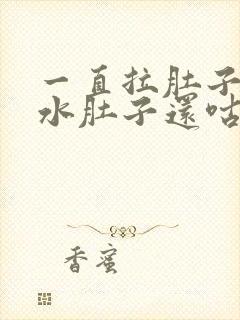 一直拉肚子
水肚子還咕
香蜜